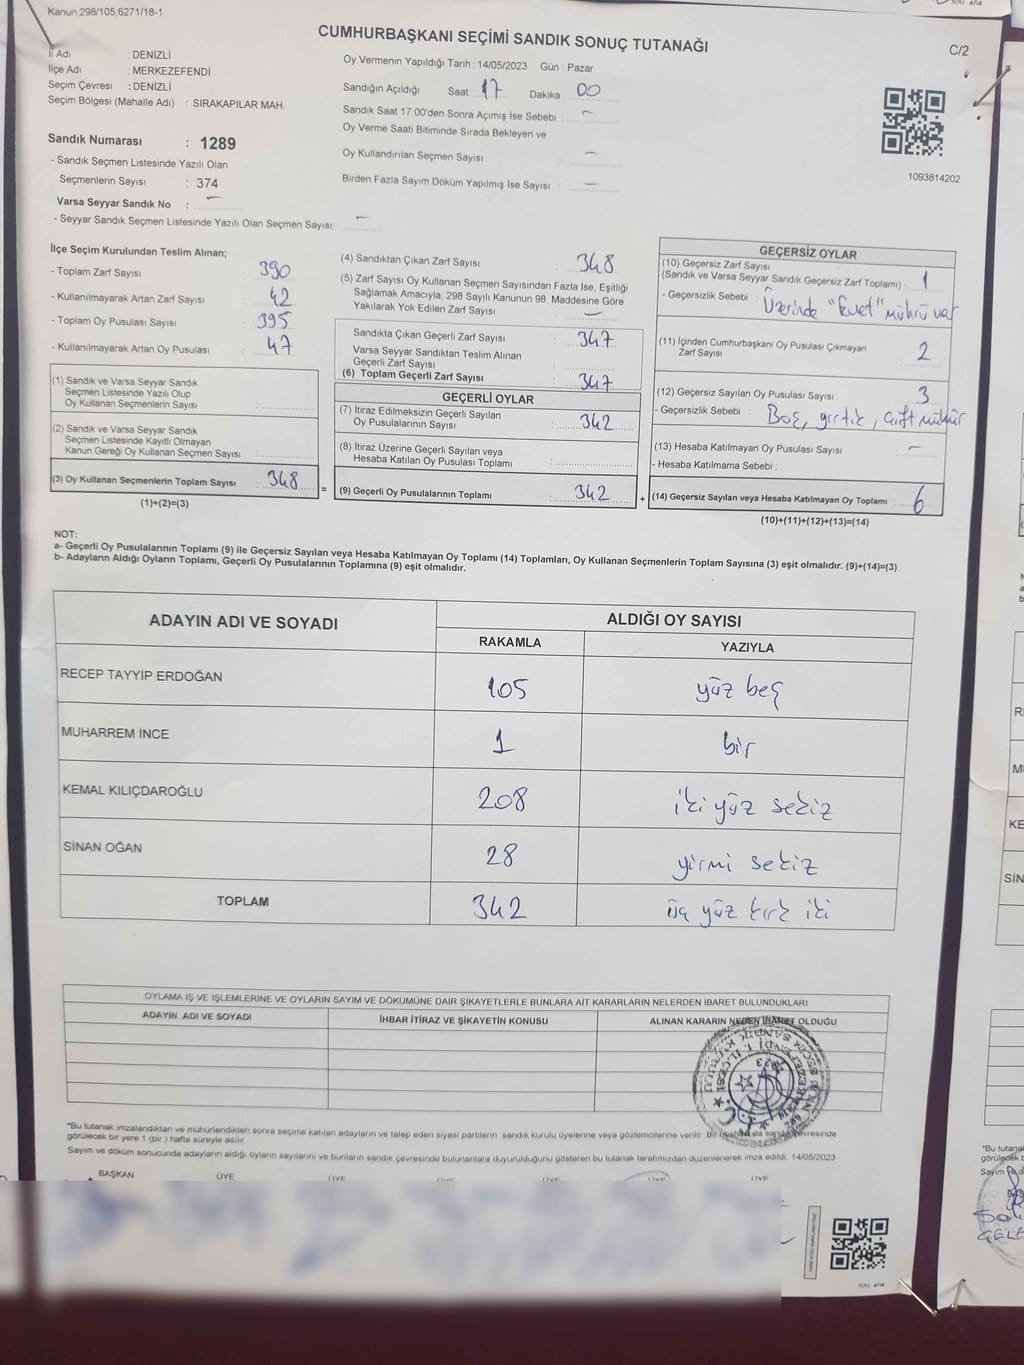 Kanun:298/105,6271/18-1
CUMHURBAŞKANI SEÇİMİ SANDIK SONUÇ TUTANAĞI
C/2
İl Adı : DENİZLİ
İlçe Adı : MERKEZEFENDİ
Seçim Çevresi : DENİZLİ
Seçim Bölgesi (Mahalle Adı) : SIRAKAPILAR MAH.
Sandık Numarası : 1289
- Sandık Seçmen Listesinde Yazılı Olan
Seçmenlerin Sayısı : 374
Varsa Seyyar Sandık No : —
- Seyyar Sandık Seçmen Listesinde Yazılı Olan Seçmen Sayısı : —
Oy Vermenin Yapıldığı Tarih : 14/05/2023 Gün : Pazar
Sandığın Açıldığı Saat 17 Dakika 00
Sandık Saat 17:00'den Sonra Açımış İse Sebebi : —
Oy Verme Saati Bitiminde Sırada Bekleyen ve
Oy Kullandırılan Seçmen Sayısı : —
Birden Fazla Sayım Döküm Yapılmış İse Sayısı : —
1093814202
İlçe Seçim Kurulundan Teslim Alınan;
- Toplam Zarf Sayısı : 390
- Kullanılmayarak Artan Zarf Sayısı : 42
- Toplam Oy Pusulası Sayısı : 395
- Kullanılmayarak Artan Oy Pusulası : 47
(1) Sandık ve Varsa Seyyar Sandık
Seçmen Listesinde Yazılı Olup
Oy Kullanan Seçmenlerin Sayısı :
(2) Sandık ve Varsa Seyyar Sandık
Seçmen Listesinde Kayıtlı Olmayan
Kanun Gereği Oy Kullanan Seçmen Sayısı :
(3) Oy Kullanan Seçmenlerin Toplam Sayısı : 348
(1)+(2)=(3)
=
(4) Sandıktan Çıkan Zarf Sayısı : 348
(5) Zarf Sayısı Oy Kullanan Seçmen Sayısından Fazla İse, Eşitliği
Sağlamak Amacıyla; 298 Sayılı Kanunun 98. Maddesine Göre
Yakılarak Yok Edilen Zarf Sayısı : —
Sandıkta Çıkan Geçerli Zarf Sayısı : 347
Varsa Seyyar Sandıktan Teslim Alınan
Geçerli Zarf Sayısı :
(6) Toplam Geçerli Zarf Sayısı : 347
GEÇERLİ OYLAR
(7) İtiraz Edilmeksizin Geçerli Sayılan
Oy Pusulalarının Sayısı : 342
(8) İtiraz Üzerine Geçerli Sayılan veya
Hesaba Katılan Oy Pusulası Toplamı :
(9) Geçerli Oy Pusulalarının Toplamı : 342
+
GEÇERSİZ OYLAR
(10) Geçersiz Zarf Sayısı
(Sandık ve Varsa Seyyar Sandık Geçersiz Zarf Toplamı) : 1
- Geçersizlik Sebebi : Üzerinde "Evet" mührü var
(11) İçinden Cumhurbaşkanı Oy Pusulası Çıkmayan
Zarf Sayısı : 2
(12) Geçersiz Sayılan Oy Pusulası Sayısı : 3
- Geçersizlik Sebebi : Boş, yırtık, çift mühür
(13) Hesaba Katılmayan Oy Pusulası Sayısı : —
- Hesaba Katılmama Sebebi :
(14) Geçersiz Sayılan veya Hesaba Katılmayan Oy Toplamı : 6
(10)+(11)+(12)+(13)=(14)
NOT:
a- Geçerli Oy Pusulalarının Toplamı (9) ile Geçersiz Sayılan veya Hesaba Katılmayan Oy Toplamı (14) Toplamları, Oy Kullanan Seçmenlerin Toplam Sayısına (3) eşit olmalıdır. (9)+(14)=(3)
b- Adayların Aldığı Oyların Toplamı, Geçerli Oy Pusulalarının Toplamına (9) eşit olmalıdır.
ADAYIN ADI VE SOYADI ALDIĞI OY SAYISI
RAKAMLA YAZIYLA
RECEP TAYYİP ERDOĞAN 105 yüz beş
MUHARREM İNCE 1 bir
KEMAL KILIÇDAROĞLU 208 iki yüz sekiz
SİNAN OĞAN 28 yirmi sekiz
TOPLAM 342 üç yüz kırk iki
OYLAMA İŞ VE İŞLEMLERİNE VE OYLARIN SAYIM VE DÖKÜMÜNE DAİR ŞİKAYETLERLE BUNLARA AİT KARARLARIN NELERDEN İBARET BULUNDUKLARI
ADAYIN ADI VE SOYADI İHBAR İTİRAZ VE ŞİKAYETİN KONUSU ALINAN KARARIN NEDEN İBARET OLDUĞU
*Bu tutanak imzalandıktan ve mühürlendikten sonra seçime katılan adayların ve talep eden siyasi partilerin sandık kurulu üyelerine veya gözlemcilerine verilir. Bir nüsha da sandık çevresinde
görülecek bir yere 1 (bir) hafta süreyle asılır.
Sayım ve döküm sonucunda adayların aldığı oyların sayılarını ve bunların sandık çevresinde bulunanlara duyurulduğunu gösteren bu tutanak tarafımızdan düzenlenerek imza edildi. 14/05/2023
BAŞKAN ÜYE ÜYE ÜYE ÜYE ÜYE